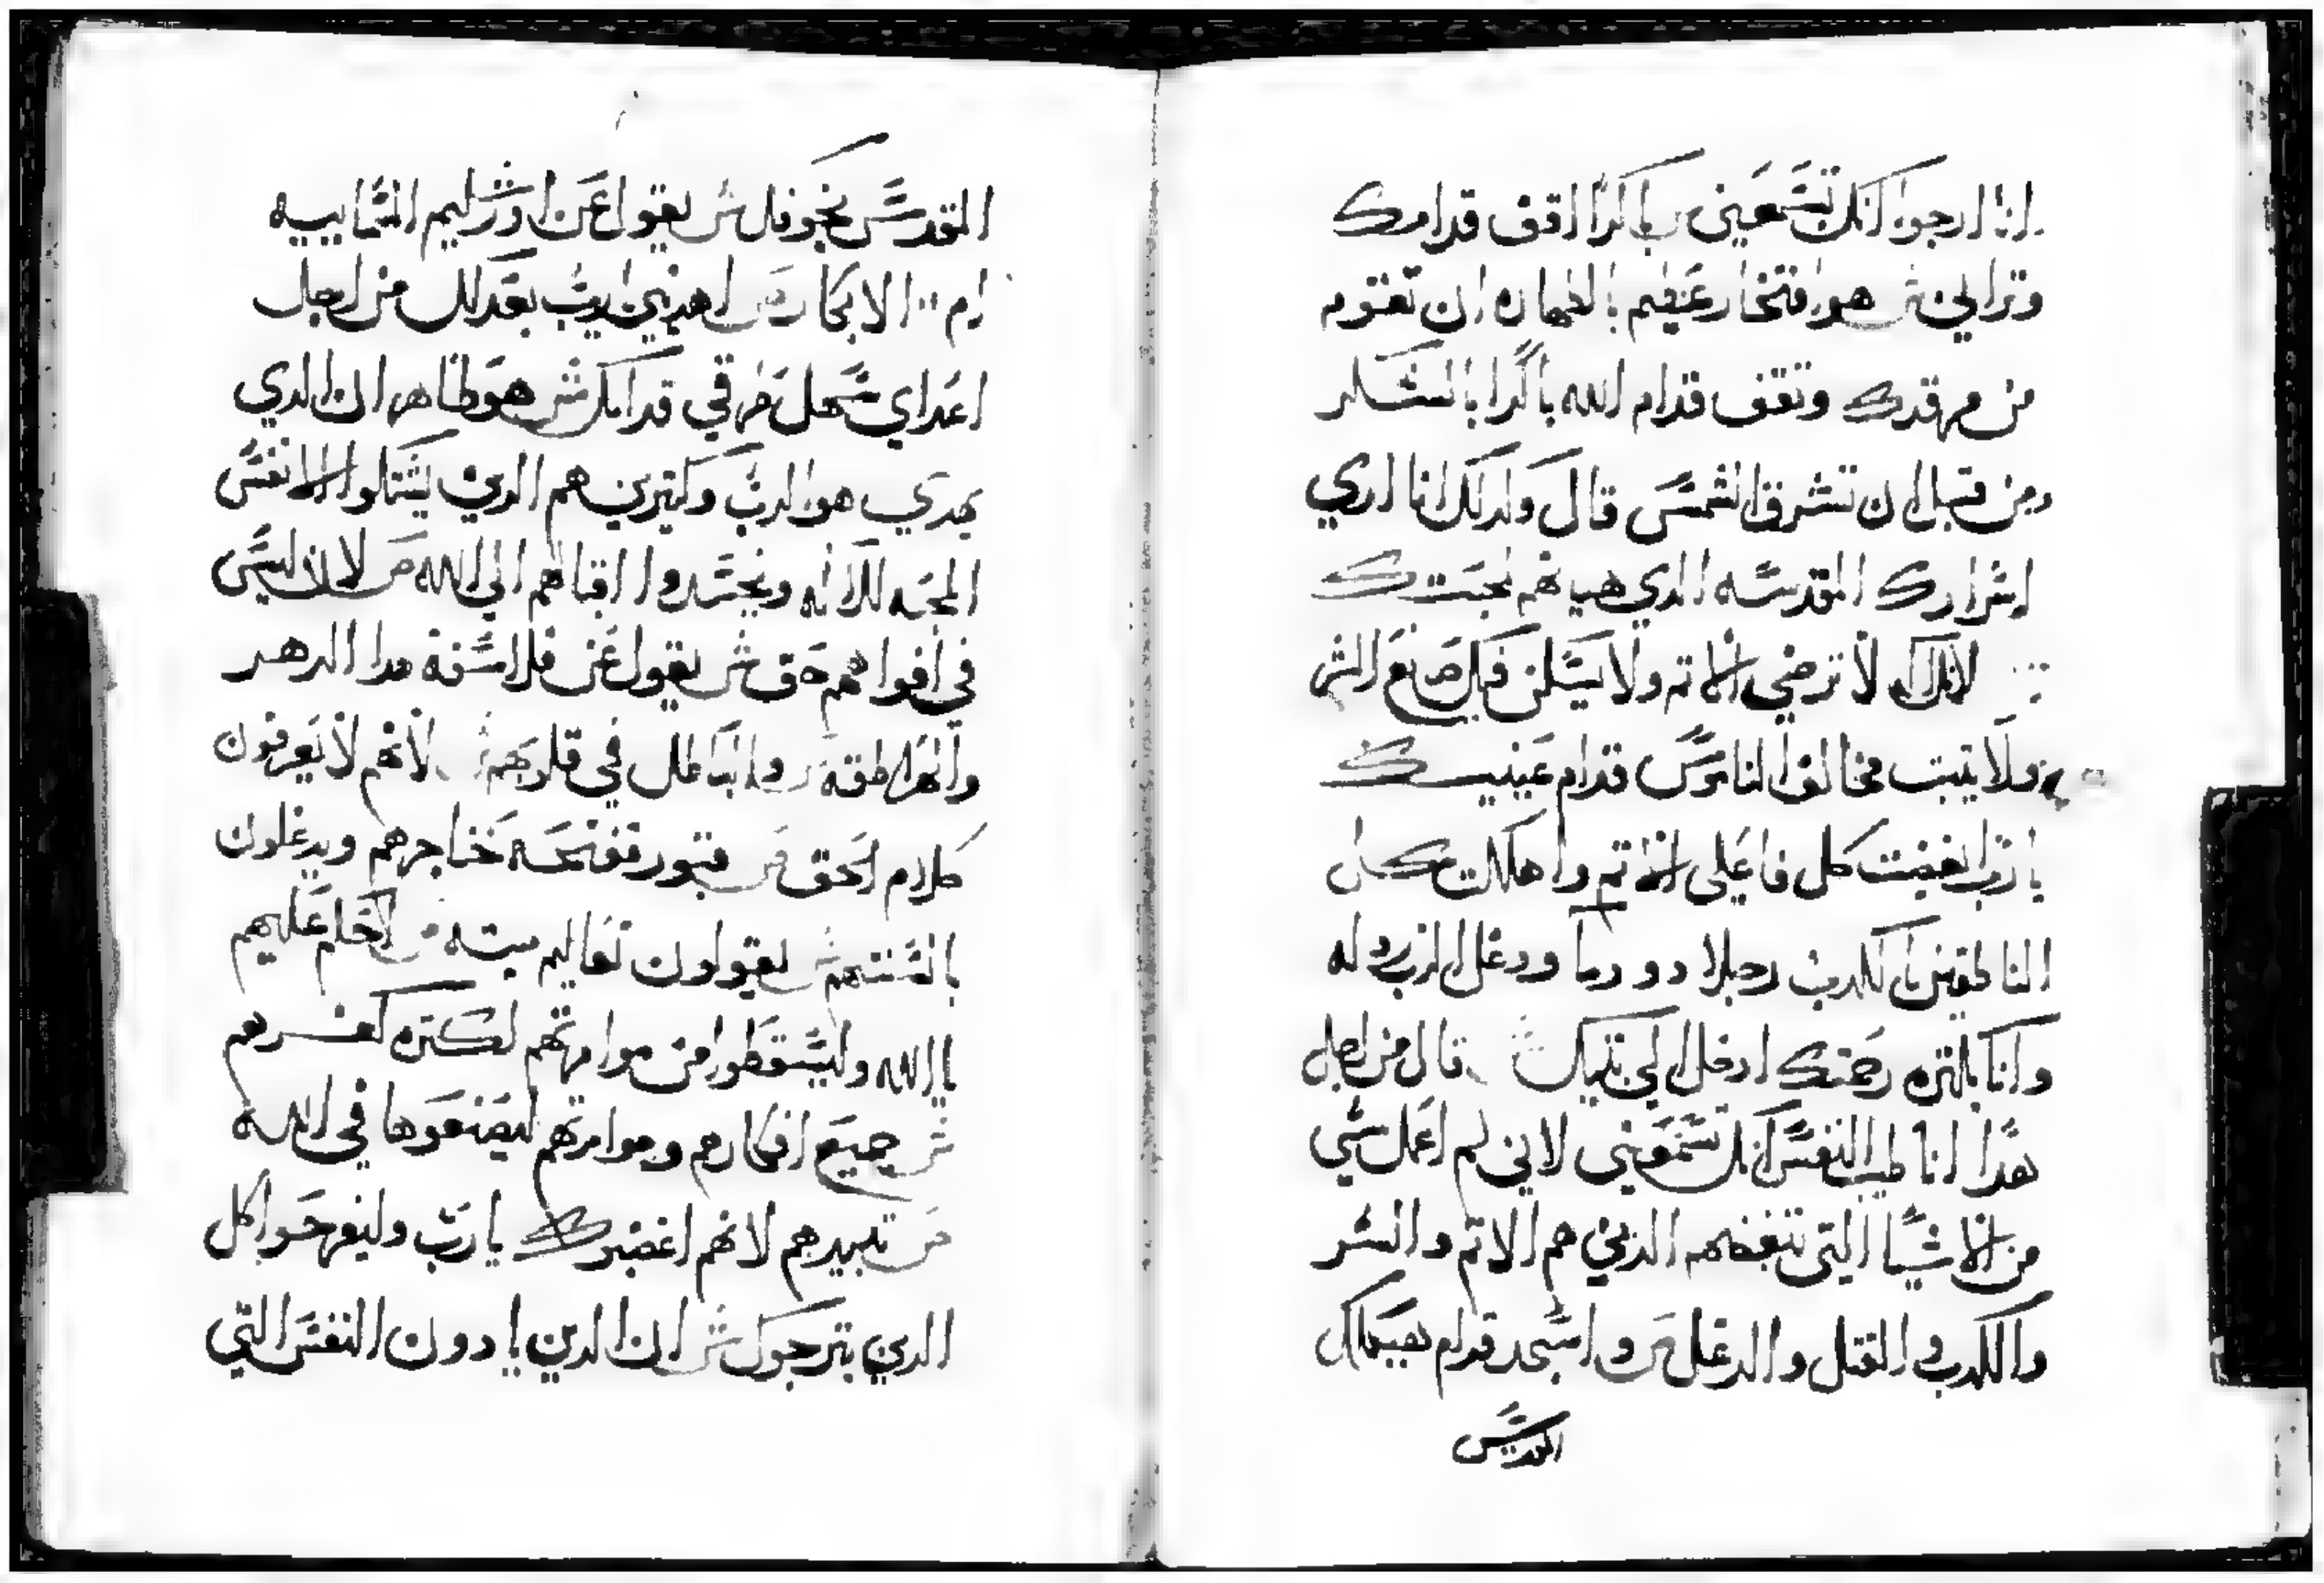 انا ارجوا انك تسمعني باكرا اقف قدامك
وتراني ش هو افتخار عظيم بالطهاره ان تقوم
من مرقدك وتقف قدام الله باكرا بالشكر
من قبل ان تشرق الشمس قال ولدلك انا اري
اسرارك المقدسه الدي هي فهم لمحبتك
لانك اله لا ترضي الاتم ولا يسكن قبلك صانع الشر
ولا يتبت مخالفوا الناموس قدام عينيك
يارب ابغضت كل فاعلي الاتم واهلكت كل
الناطقين بالكدب رجلا دو دما ودغل الرب يردله
وانا بكتره رحمتك ادخل الي بيتك ش قال من اجل
هدا انا طيب النفس انك تسمعني لاني لم اعمل شي
من الاشيا التي تبغضهم الدين هم الاتم والشر
والكدب والقتل والدغل ص واسجد قدام هيكلك
المقدس
المقدس بخوفك ش يقول عن اورشليم السماييه
ام الابكار ص اهديني يارب بعدلك من اجل
اعداي سهل طرقي قدامك ش هو ظاهر ان الدي
يهدي هو الرب وكتيرين هم الدين يشتكوا الانفس
المحبه للاله ويجتدوا اقبالهم الي الله ص لان ليس
في افواههم حق ش يقول عن فلاسفة هدا الدهر
والهراطقه والباطل في قلوبهم ش لانهم لا يعرفون
كلام الحق ص قبور مفتحه حناجرهم ويدغلون
بالسنتهم ش يقولون تعاليم ميته ص احكم عليهم
يا الله وليسقطوا من موامرتهم لكتره كفرهم
ش جميع افكارهم وموامرتهم ليصنعوها في الله
ص تبيدهم لانهم اغضبوك يارب وليفرحوا كل
الدين يترجوك ش ان الدين يادون النفس التي